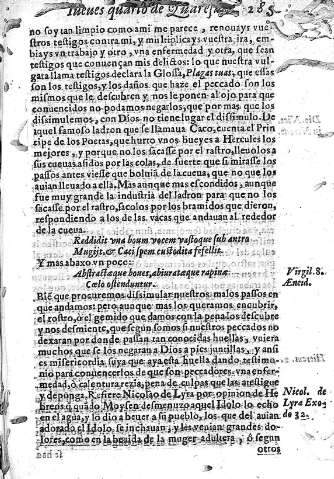 Jueves quarto de Quaresma. 285
no soy tan limpio como a mi me parece, renouays vue-
stros testigos contra mi, y multiplicays vuestra ira, em-
biays vn trabajo y otro, vna enfermedad y otra, que sean
testigos que conuençan mis delictos: lo que nuestra vul-
gata llama testigos declara la Glossa, Plagas tuas, que essas
son los testigos, y los daños que haze el peccado son los
mismos que le descubren y nos le ponen al ojo para que
conuencidos no podamos negarlos; que por mas que los
dissimulemos, con Dios no tiene lugar el dissimulo. De
aquel famoso ladron que se llamaua Caco, cuenta el Prin
cipe de los Poetas, que hurto vnos bueyes a Hercules los
mejores, y porque no los sacasse por el rastro, lleuolos a
sus cueuas asidos por las colas, de suerte que si mirasse los
passos antes viesse que boluia de la cueua, que no que los
auian lleuado a ella. Mas aunque mas escondidos, aunque
fue muy grande la industria del ladron para que no los
sacasse por el rastro, sacolos por los bramidos que dieron,
respondiendo a los de las vacas que andauan al rededor
de la cueua.
Reddidit vna boum vocem vastoque sub antro
Mugijt, & Caci spem custodita fefellit.
Y mas abaxo vn poco:
Abstractæque boues, abiuratæque rapinæ
Cælo ostenduntur.
Virgil. 8.
Æneid.
Biē que procuremos dissimular nuestros malos passos en
que andamos: pero aunque mas los queramos encubrir,
el rostro, o el gemido que damos con la pena los descubre
y nos desmiente, que segun somos si nuestros peccados no
dexaran por donde passan tan conocidas huellas, vuiera
muchos que se los negaran a Dios a pies juntillas, y ansi
es misericordia suya que aya esta huella dando testimo-
nio para conuencerlos de que son peccadores vna enfer-
medad, o calentura rezia, pena de culpas que las atestigue
y deponga. Refiere Nicolao de Lyra por opinion de He
breos, q quādo Moysen desmenuzo aquel Idolo lo echo
en el agua, y lo dio a beuer a su pueblo, los que del auian
adorado el Idolo se inchauan, y les venian grandes do-
lores, como en la beuida de la muger adultera, ó segun
Nicol. de
Lyra Exo.
de 32.
otros